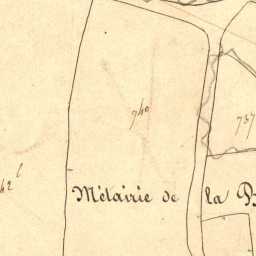 740
737
Métairie de la